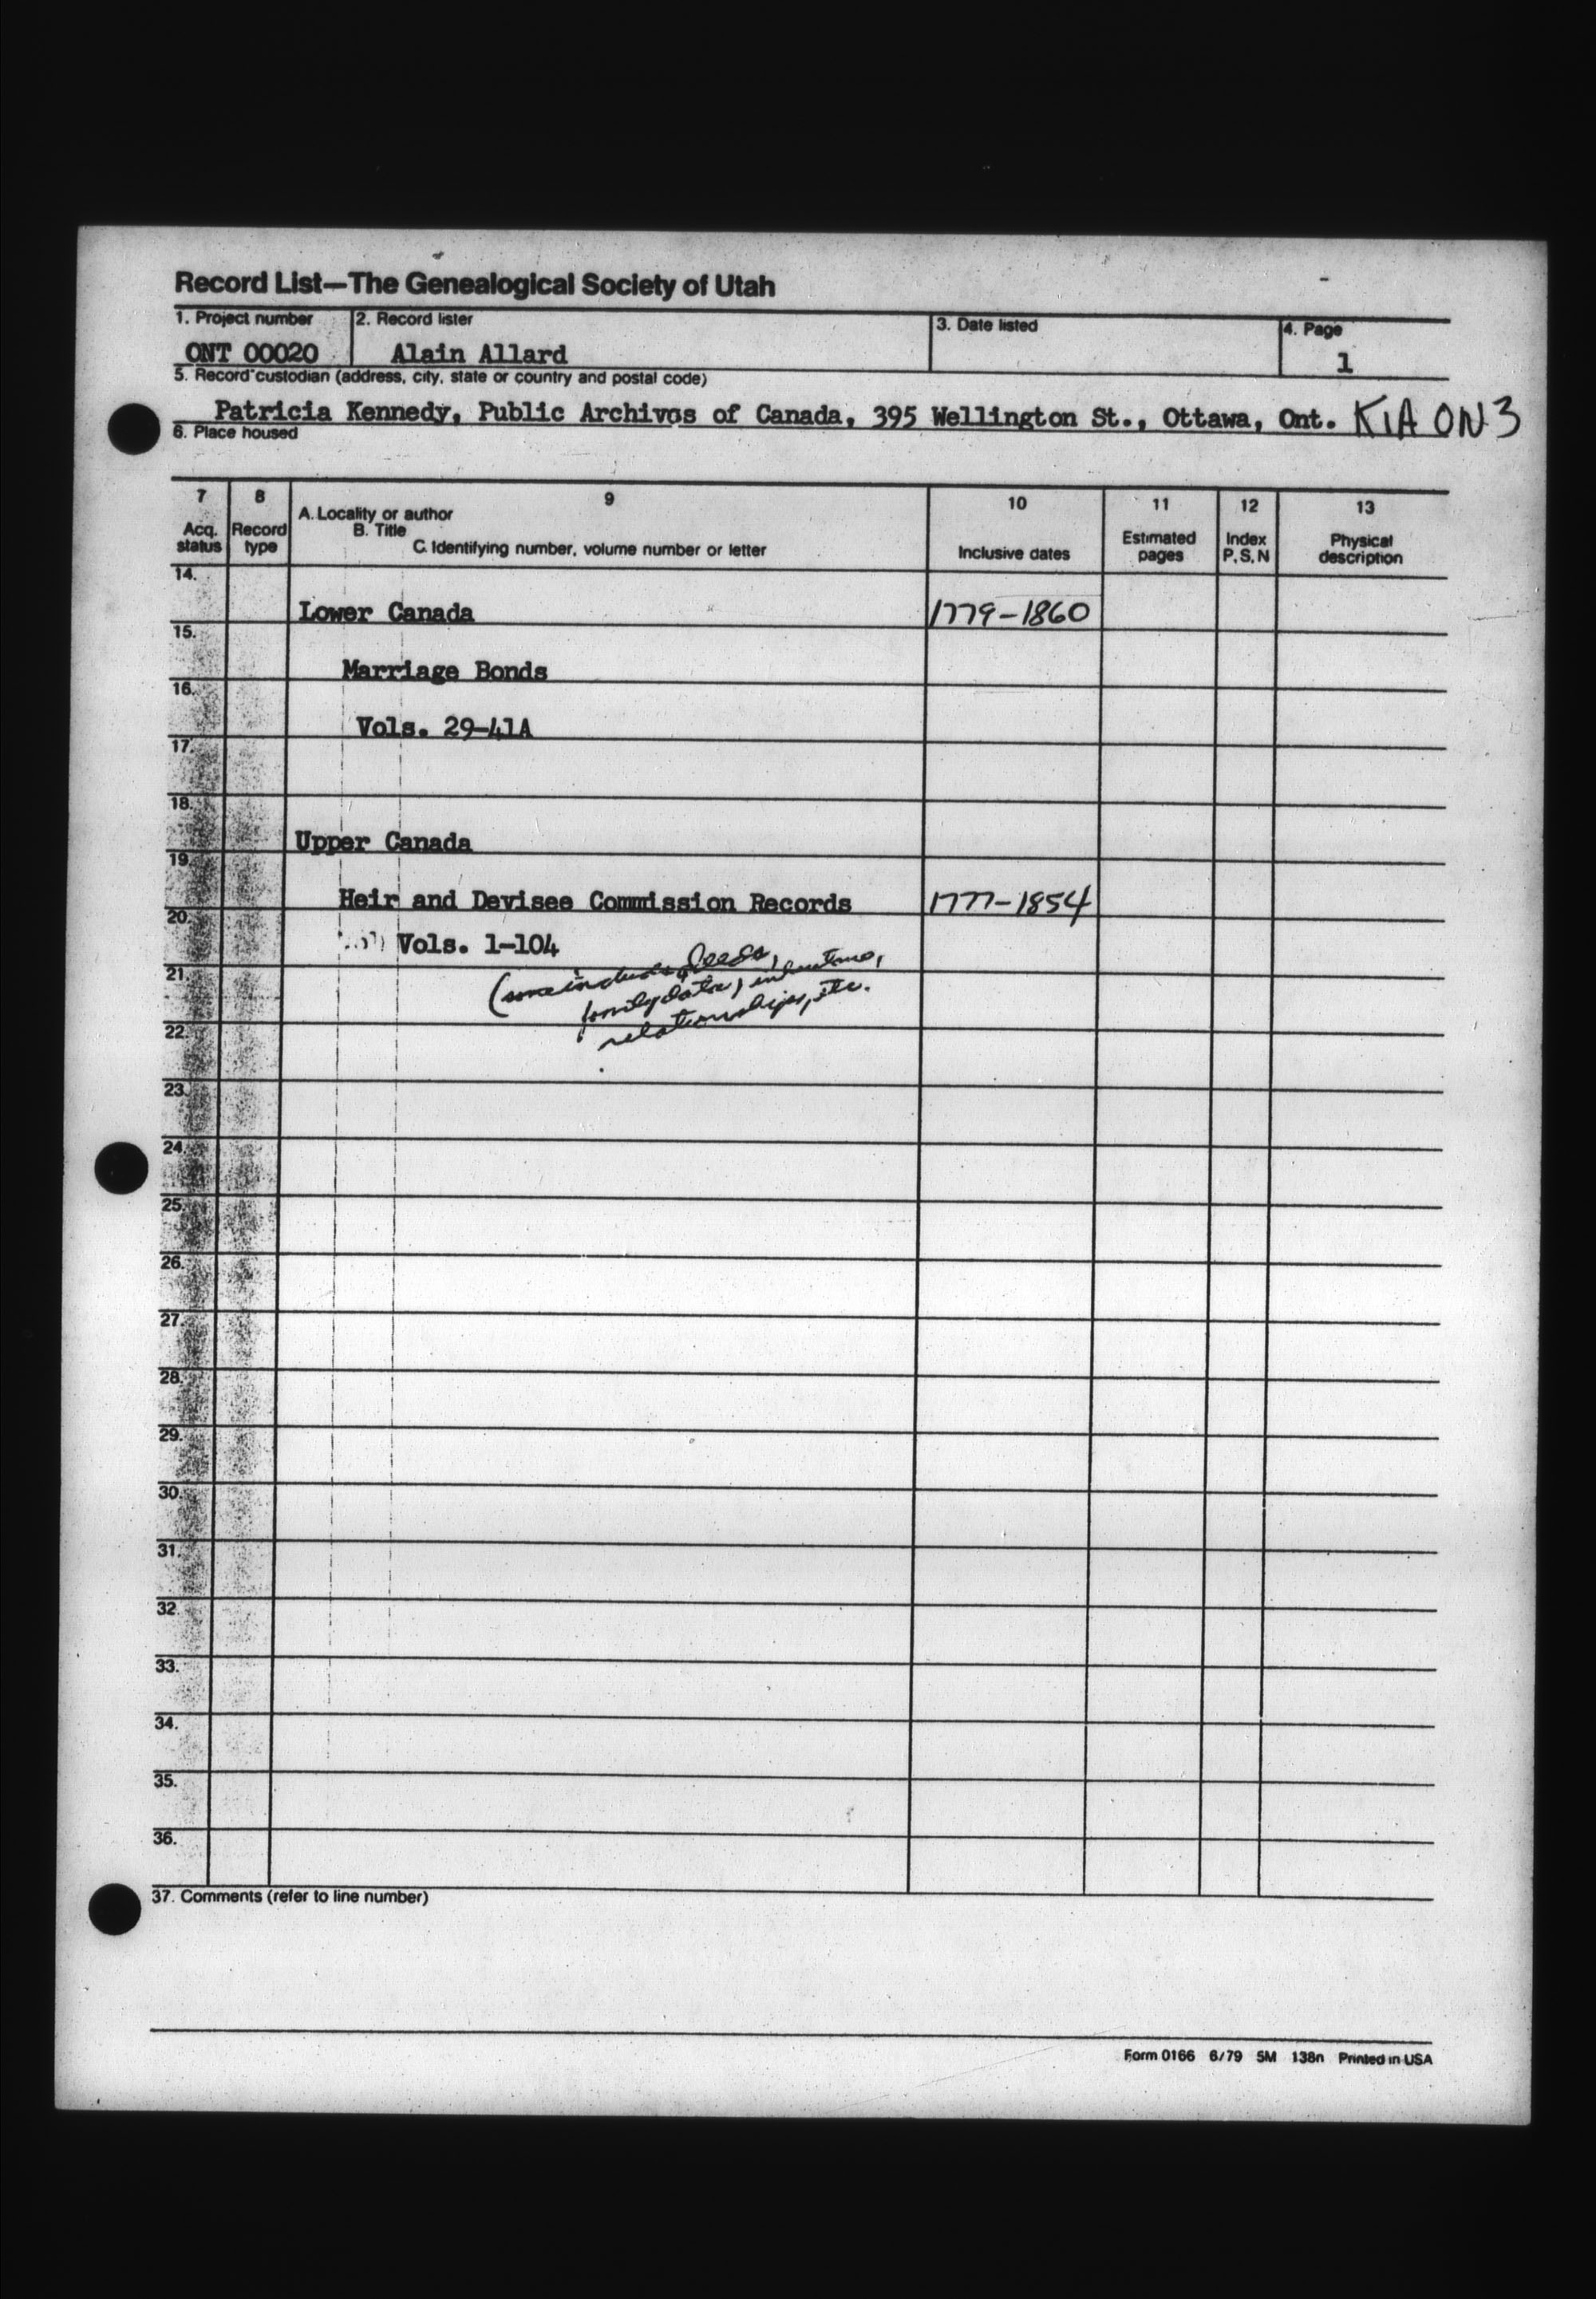 Record List—The Genealogical Society of Utah
1. Project number 2. Record lister 3. Date listed 4. Page
ONT 00020 Alain Allard 1
5. Record custodian (address, city, state or country and postal code)
Patricia Kennedy, Public Archives of Canada, 395 Wellington St., Ottawa, Ont. K1A 0N3
6. Place housed
7 8 9 10 11 12 13
A. Locality or author
B. Title
C. Identifying number, volume number or letter
Acq. status Record type Inclusive dates Estimated pages Index P, S, N Physical description
14.
Lower Canada 1779-1860
15.
Marriage Bonds
16.
Vols. 29-41A
17.
18.
Upper Canada
19.
Heir and Devisee Commission Records 1777-1854
20.
Vols. 1-104
21.
(some include deeds,
family data,
relationships, etc.
22.
23.
24.
25.
26.
27.
28.
29.
30.
31.
32.
33.
34.
35.
36.
37. Comments (refer to line number)
Form 0166 6/79 5M 138n Printed in USA